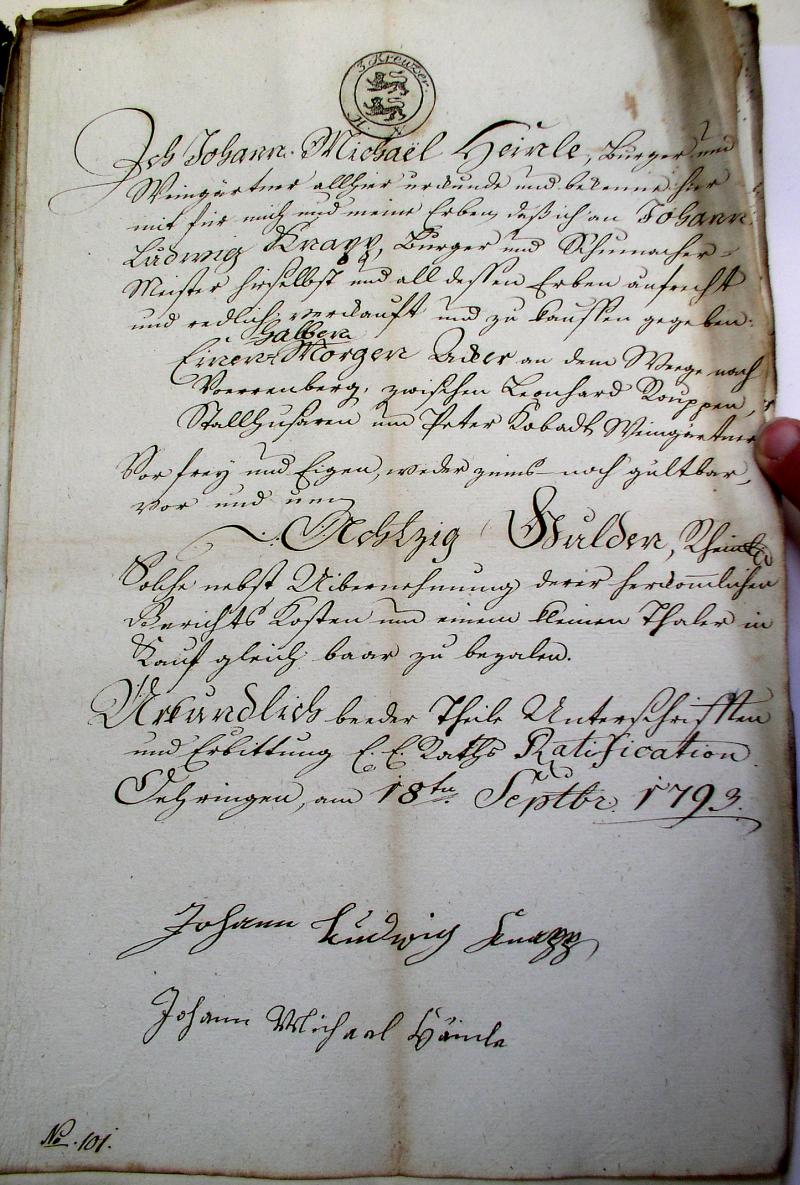 3. Kreuzer.
H. N.
Ich Johann Michaël Heinle, Burger und
Weingärtner allhier urkunde und bekenne hier
mit für mich und meine Erben, daß ich an Johann
Ludwig Knapp, Burger und Schumacher-
Meister hieselbst und all dessen Erben aufrecht
und redlich verkauft und zu kauffen gegeben:
halben
Einen Morgen Acker an dem Weege nach
Verrenberg, zwischen Leonhard Rouppen,
Stallhusaren und Peter Kobadt Weingärtner
Vor frey und Eigen, weder zinns- noch gültbar,
vor und um
Achtzig Gulden, Rheinl.
Solche nebst Uibernehmung derer herkom̄lichen
Gerichts Kosten und einem kleinen Thaler in
Kauf gleich baar zu bezalen.
Urkundlich beeder Theile Unterschrifften
und Erbittung E. E. Raths Ratification.
Oehringen, am 18ten Septbr. 1793.
Johann Ludwig Knapp
Johann Michael Häinle
No. 101.